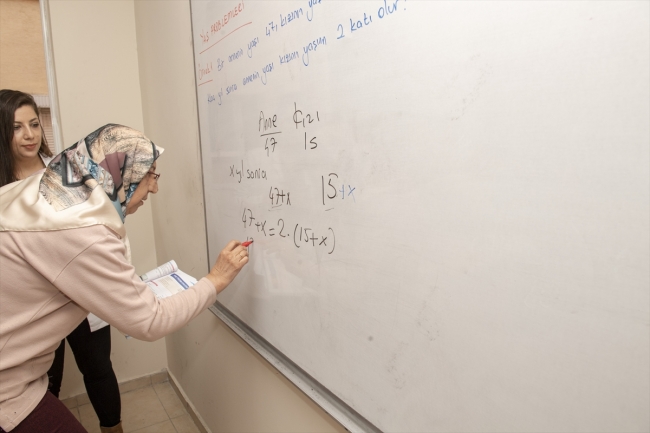 YAŞ PROBLEMLERİ
Örnek Bir annenin yaşı 47, kızının yaşı
Kaç yıl sonra annenin yaşı kızının yaşının 2 katı olur?
Anne Kızı
47 15
x yıl sonra
47+x 15+x
47+x=2.(15+x)